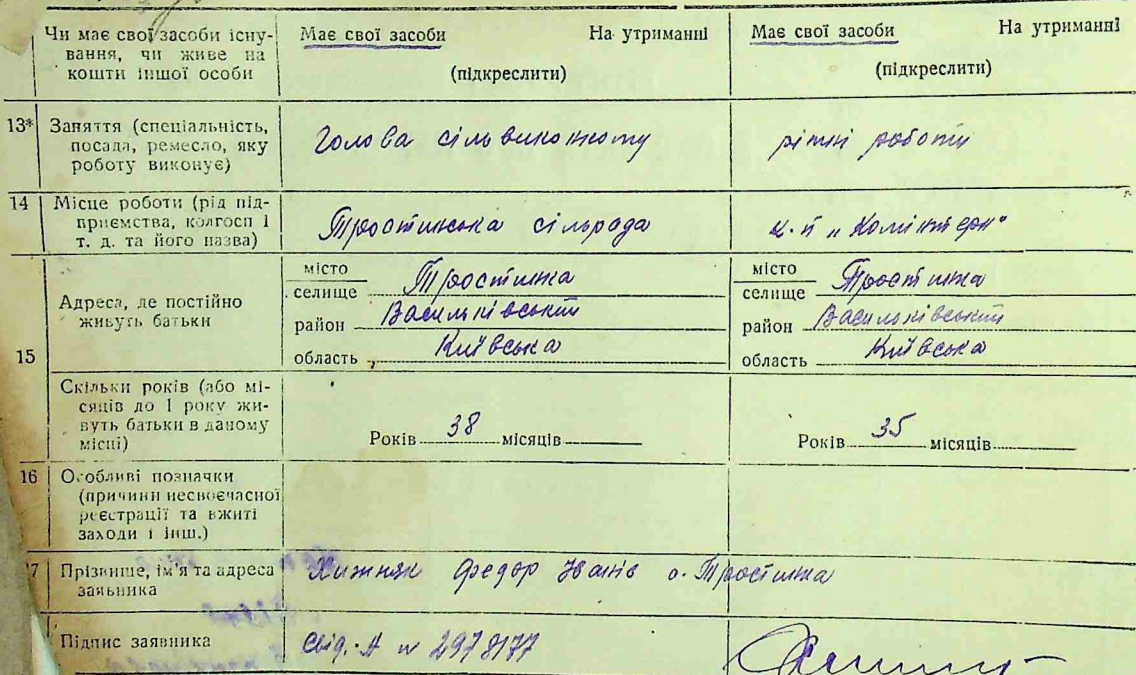 Чи має свої засоби існу-
вання, чи живе на
кошти іншої особи
Має свої засоби На утриманні
(підкреслити)
Має свої засоби На утриманні
(підкреслити)
13* Заняття (спеціальність,
посада, ремесло, яку
роботу виконує)
Голова сільвиконкому
різні роботи
14 Місце роботи (рід під-
приємства, колгосп і
т. д. та його назва)
Тростинська сільрада
к-п „Комінтерн"
15 Адреса, де постійно
живуть батьки
місто
селище Тростинка
район Васильківський
область Київська
місто
селище Тростинка
район Васильківський
область Київська
Скільки років (або мі-
сяців до 1 року жи-
вуть батьки в даному
місці)
Років 38 місяців
Років 35 місяців
16 Особливі позначки
(причини несвоєчасної
реєстрації та вжиті
заходи і інш.)
7 Прізвище, ім'я та адреса
заявника
Хижняк Федор Іванів с. Тростинка
Підпис заявника
свід. А № 2978177